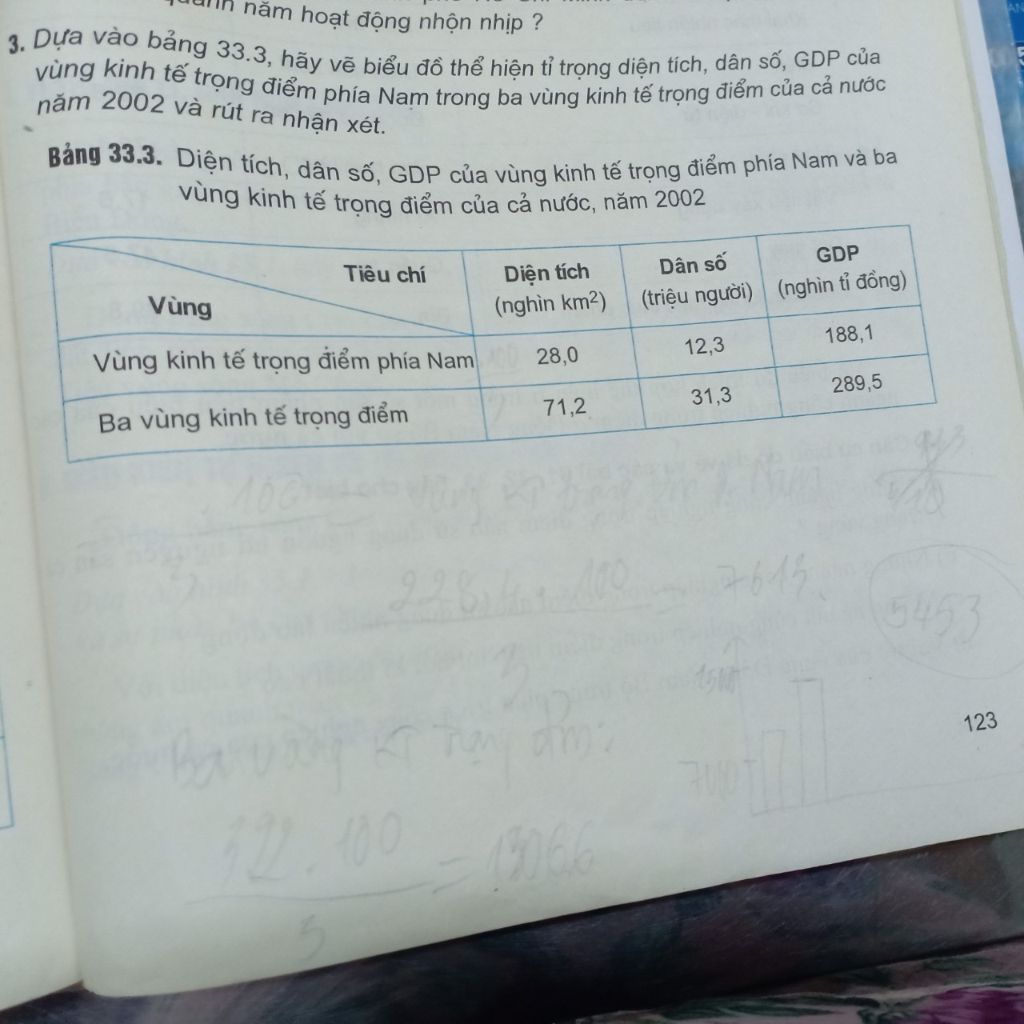 quanh năm hoạt động nhộn nhịp ?
3. Dựa vào bảng 33.3, hãy vẽ biểu đồ thể hiện tỉ trọng diện tích, dân số, GDP của
vùng kinh tế trọng điểm phía Nam trong ba vùng kinh tế trọng điểm của cả nước
năm 2002 và rút ra nhận xét.
Bảng 33.3. Diện tích, dân số, GDP của vùng kinh tế trọng điểm phía Nam và ba
vùng kinh tế trọng điểm của cả nước, năm 2002
Tiêu chí Diện tích Dân số GDP
Vùng (nghìn km²) (triệu người) (nghìn tỉ đồng)
Vùng kinh tế trọng điểm phía Nam 28,0 12,3 188,1
Ba vùng kinh tế trọng điểm 71,2 31,3 289,5
100
228,4 . 100 = 7613
3
5453
123
322 . 100 =
3